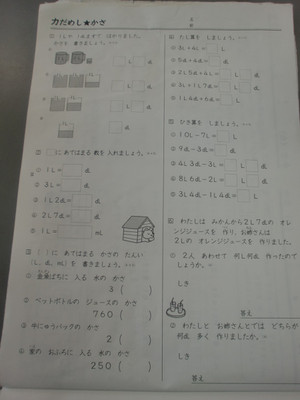 力だめし★かさ
① 1Lや 1dLますで はかりました。
かさを 書きましょう。
② □に あてはまる 数を 入れましょう。
① 1L= □ dL
② 3L= □ dL
③ 1L2dL= □ dL
④ 2L7dL= □ dL
⑤ 1L= □ mL
③ ( )に あてはまる かさの たんい
(L、dL、mL)を 書きましょう。
① 金魚ばちに 入る 水の かさ
3 ( )
② ペットボトルの ジュースの かさ
760 ( )
③ 牛にゅうパックの かさ
2 ( )
④ 家の おふろに 入る 水の かさ
250 ( )
④ たし算を しましょう。
① 3L+4L= □ L
② 5dL+4dL= □ dL
⑤ ひき算を しましょう。
① 10L-7L= □ L
② 9dL-3dL= □ dL
③ 4L3dL-3L= □ L □ dL
④ 8L6dL-2L= □ L □ dL
⑤ 3L4dL-1L4dL= □ L
⑥ わたしは みかんから2L7dLの オレ
ンジジュースを 作り、お姉さんは
2Lの オレンジジュースを 作りました。
① 2人 あわせて 何L何dL 作ったので
しょうか。
しき
答え
② わたしと お姉さんとでは どちらが
何dL 多く 作りましたか。
しき
答え